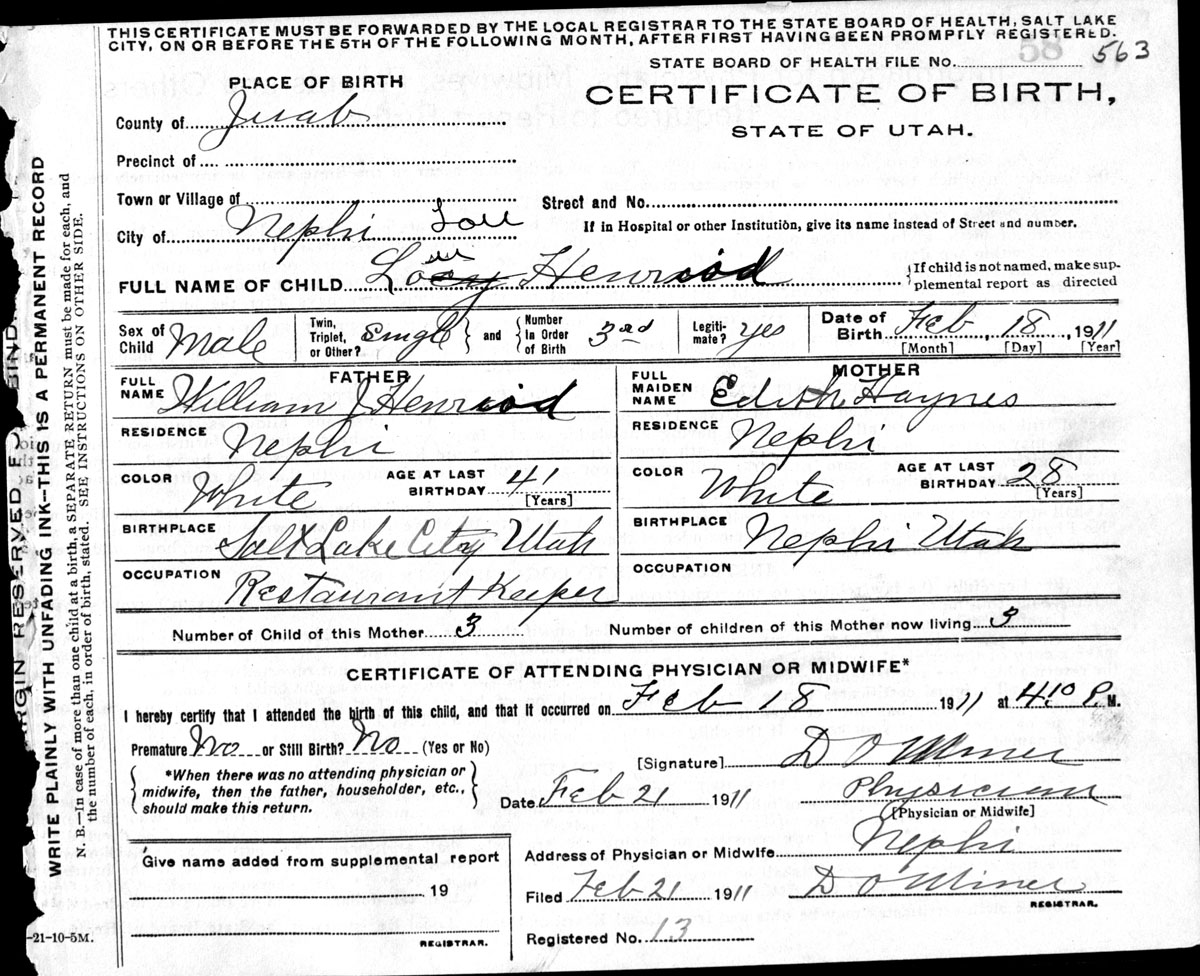 THIS CERTIFICATE MUST BE FORWARDED BY THE LOCAL REGISTRAR TO THE STATE BOARD OF HEALTH, SALT LAKE
CITY, ON OR BEFORE THE 5TH OF THE FOLLOWING MONTH, AFTER FIRST HAVING BEEN PROMPTLY REGISTERED.
58
STATE BOARD OF HEALTH FILE No. 563
PLACE OF BIRTH
CERTIFICATE OF BIRTH,
STATE OF UTAH.
County of Juab
Precinct of
Town or Village of
Street and No.
City of Nephi
If in Hospital or other Institution, give its name instead of Street and number.
Lou
FULL NAME OF CHILD Henriod
If child is not named, make sup-
plemental report as directed
Sex of Child Male
Twin, Triplet, or Other? Single and Number in Order of Birth 3rd
Legiti-mate? yes
Date of Birth Feb 18, 1911
[Month] [Day] [Year]
FATHER
FULL NAME William J Henriod
RESIDENCE Nephi
COLOR White AGE AT LAST BIRTHDAY 41 [Years]
BIRTHPLACE Salt Lake City Utah
OCCUPATION Restaurant Keeper
MOTHER
FULL MAIDEN NAME Edith Haynes
RESIDENCE Nephi
COLOR White AGE AT LAST BIRTHDAY 28 [Years]
BIRTHPLACE Nephi Utah
OCCUPATION
Number of Child of this Mother 3 Number of children of this Mother now living 3
CERTIFICATE OF ATTENDING PHYSICIAN OR MIDWIFE*
I hereby certify that I attended the birth of this child, and that it occurred on Feb 18 1911 at 4:10 P. M.
Premature No or Still Birth? No (Yes or No)
*When there was no attending physician or
midwife, then the father, householder, etc.,
should make this return.
[Signature] D O Miner
Date Feb 21 1911 Physician
[Physician or Midwife]
Address of Physician or Midwife Nephi
Filed Feb 21 1911 D O Miner
REGISTRAR.
Registered No. 13
Give name added from supplemental report
19
REGISTRAR.
-21-10-5M.
MARGIN RESERVED FOR BINDING
WRITE PLAINLY WITH UNFADING INK—THIS IS A PERMANENT RECORD
N. B.—In case of more than one child at a birth, a SEPARATE RETURN must be made for each, and
the number of each, in order of birth, stated. SEE INSTRUCTIONS ON OTHER SIDE.